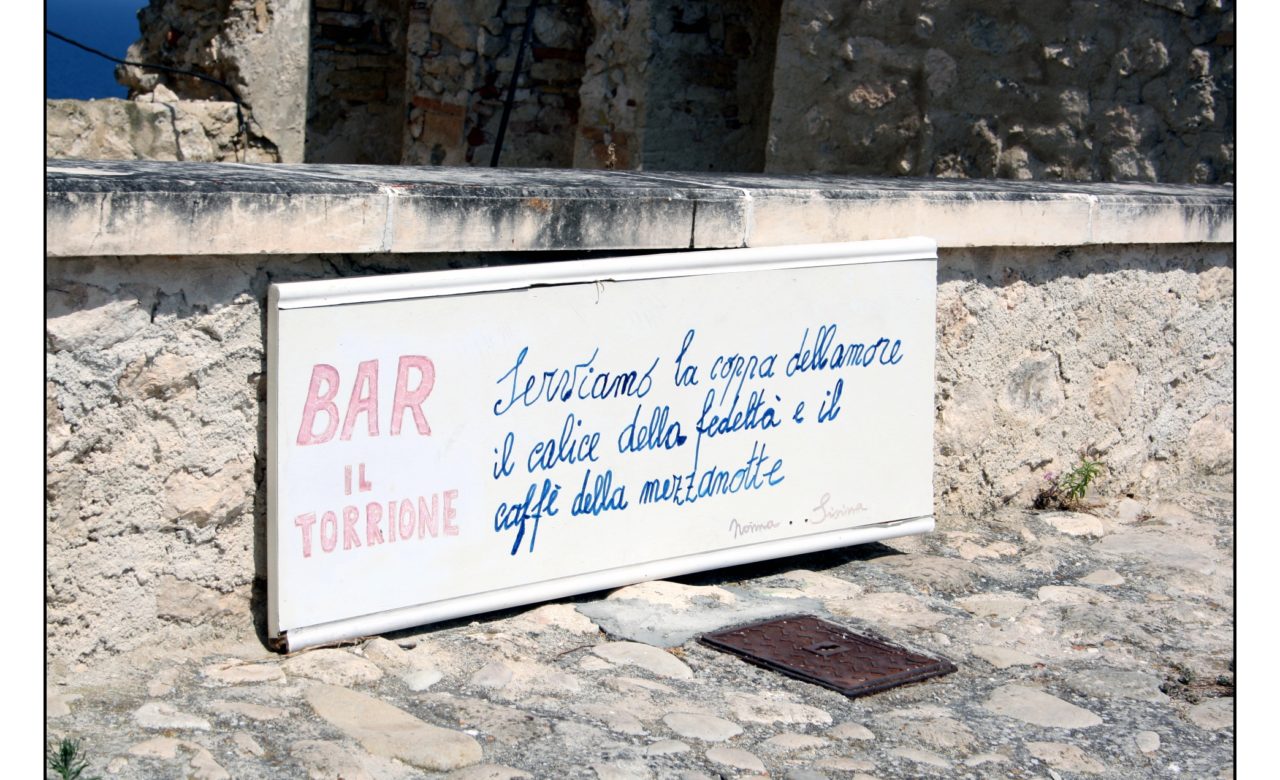 BAR
IL
TORRIONE
Serviamo la coppa dellamore
il calice della fedeltà e il
caffè della mezzanotte
Nonna .. Sisina